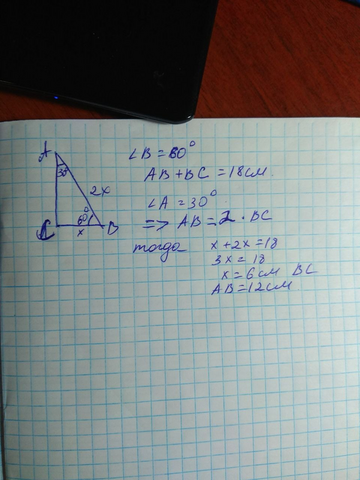 A
30
2x
60°
C
x
B
∠B = 60°
AB + BC = 18 см.
∠A = 30°
=> AB = 2 · BC
тогда x + 2x = 18
3x = 18
x = 6 см BC
AB = 12 см